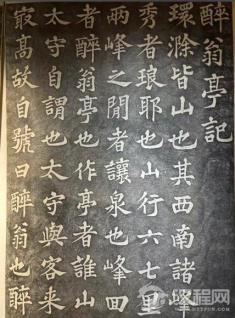 醉翁亭記
環滁皆山也其西南諸峰
秀者琅耶也山行六七里
兩峰之閒者讓泉也峰回
者醉翁亭也作亭者誰山
太守自謂也太守與客来
㝡高故自號曰醉翁也醉